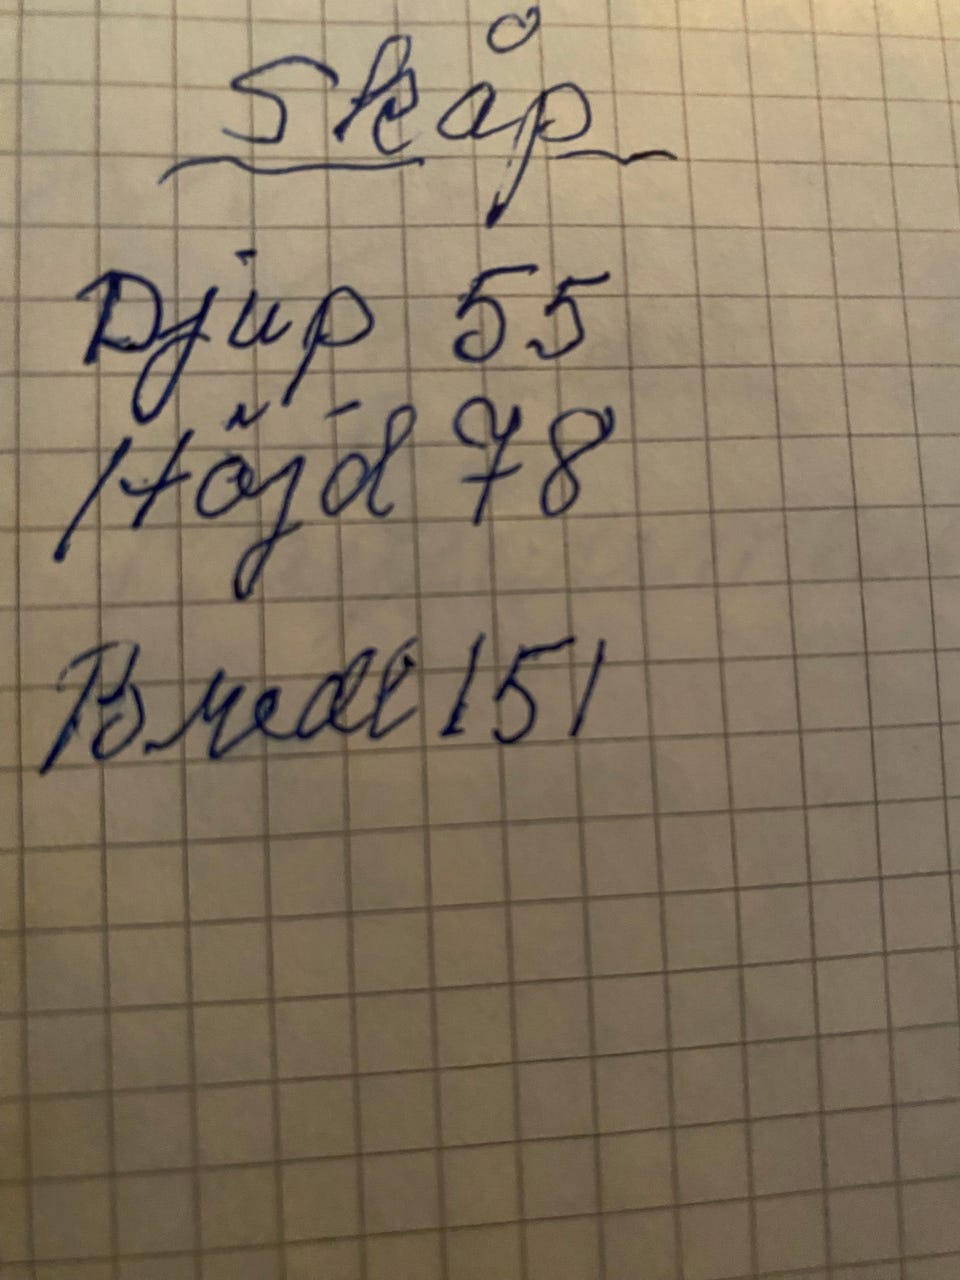 Skåp
Djup 55
Höjd 78
Bredd 151